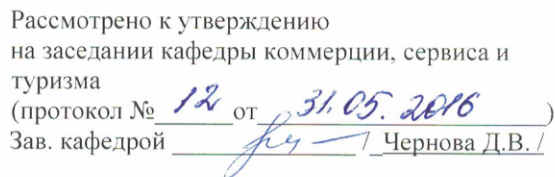 Рассмотрено к утверждению
на заседании кафедры коммерции, сервиса и
туризма
(протокол № 12 от 31.05.2016)
Зав. кафедрой / Чернова Д.В. /